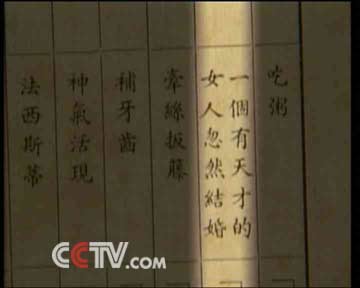 吃粥
一個有天才的
女人忽然結婚
牽絲扳藤
補牙齒
神氣活現
法西斯蒂
CCTV.com